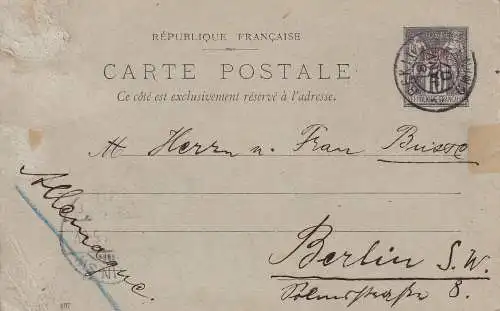 RÉPUBLIQUE FRANÇAISE
CARTE POSTALE
Ce côté est exclusivement réservé à l'adresse.
M Herrn u. Frau Busse
Allemagne.
Berlin S. W.
Solmsstraße 8.